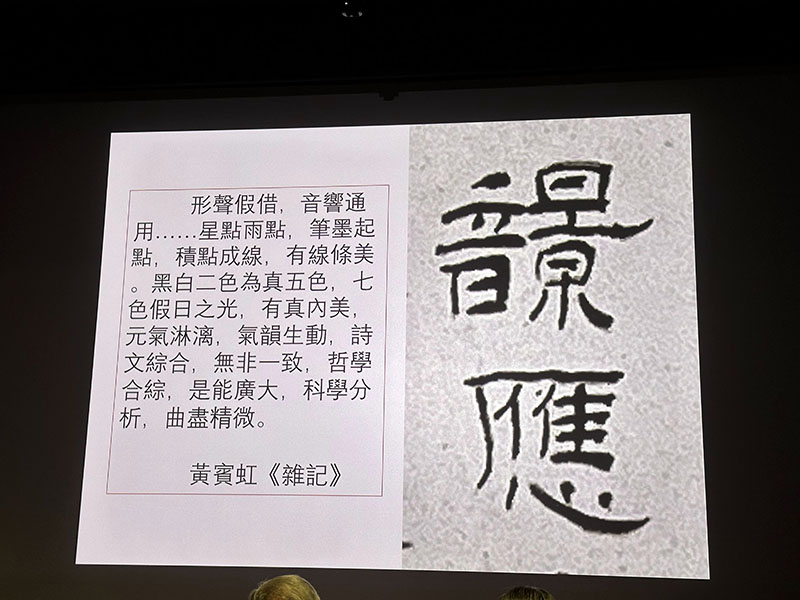 形聲假借，音響通
用……星點雨點，筆墨起
點，積點成線，有線條美
。黑白二色為真五色，七
色假日之光，有真內美，
元氣淋漓，氣韻生動，詩
文綜合，無非一致，哲學
合綜，是能廣大，科學分
析，曲盡精微。
黃賓虹《雜記》
應